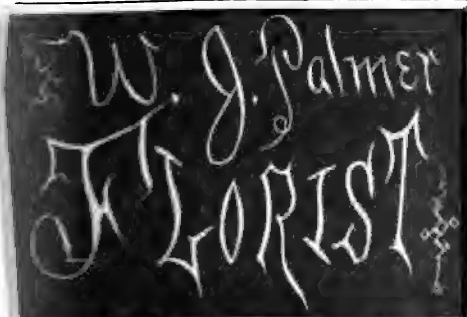 W. J. Palmer
FLORIST